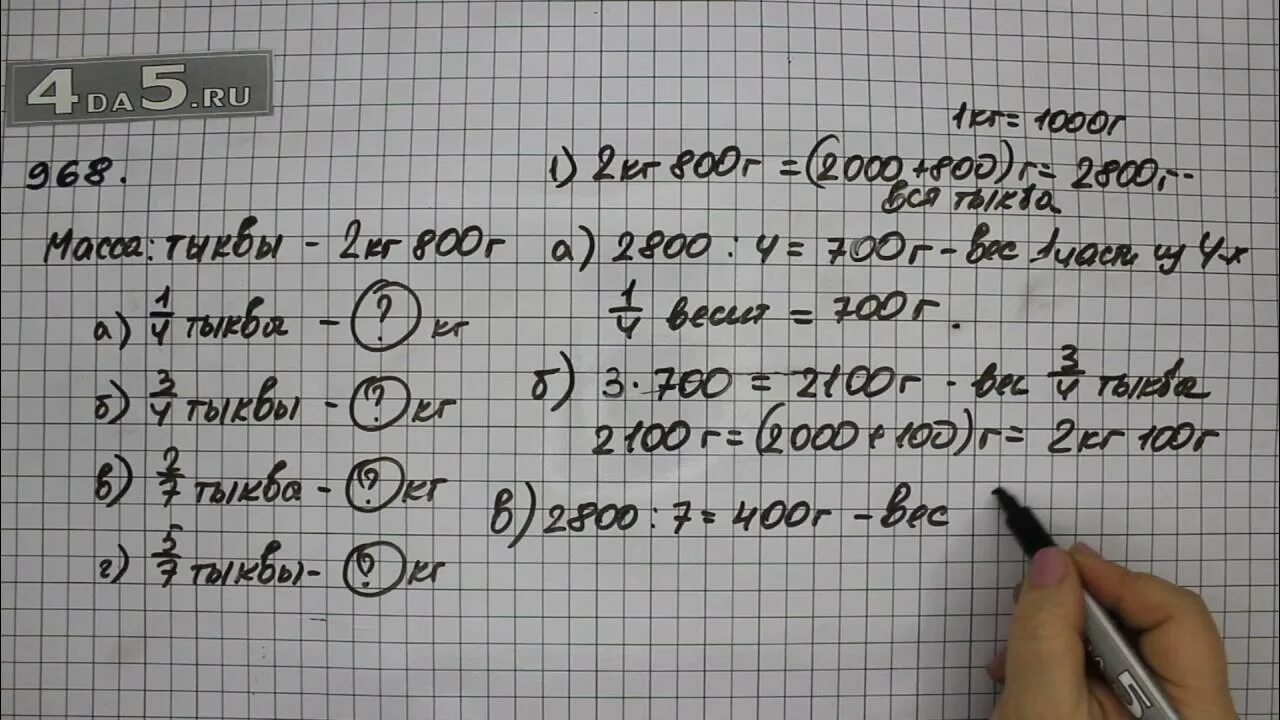 4DA5.RU
968.
Масса: тыквы - 2кг 800г
а) 1/4 тыква - ? кг
б) 3/4 тыквы - ? кг
в) 2/7 тыква - ? кг
г) 5/7 тыквы - ? кг
1кг = 1000г
1) 2кг 800г = (2000 + 800) г = 2800г -
вся тыква
а) 2800 : 4 = 700г - вес 1 част. из 4-х
1/4 весит = 700г.
б) 3 · 700 = 2100г - вес 3/4 тыква
2100г = (2000 + 100) г = 2кг 100г
в) 2800 : 7 = 400г - вес
5